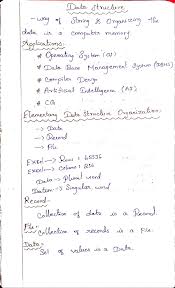 Data Structure
- way of Storing & Organizing the
data in a computer memory
Applications:
# Operating System (OS)
# Data Base Management System (DBMS)
# Compiler Design
# Artificial Intelligence (AI)
# CG
Elementary Data Structure Organization:
→ Data
→ Record
→ File
Excel → Rows : 65536
Excel → Column : 256
Data → Plural word
Datum → Singular word
Record:
Collection of data is a Record.
File:
Collection of records is a File.
Data:
Set of values is a Data.